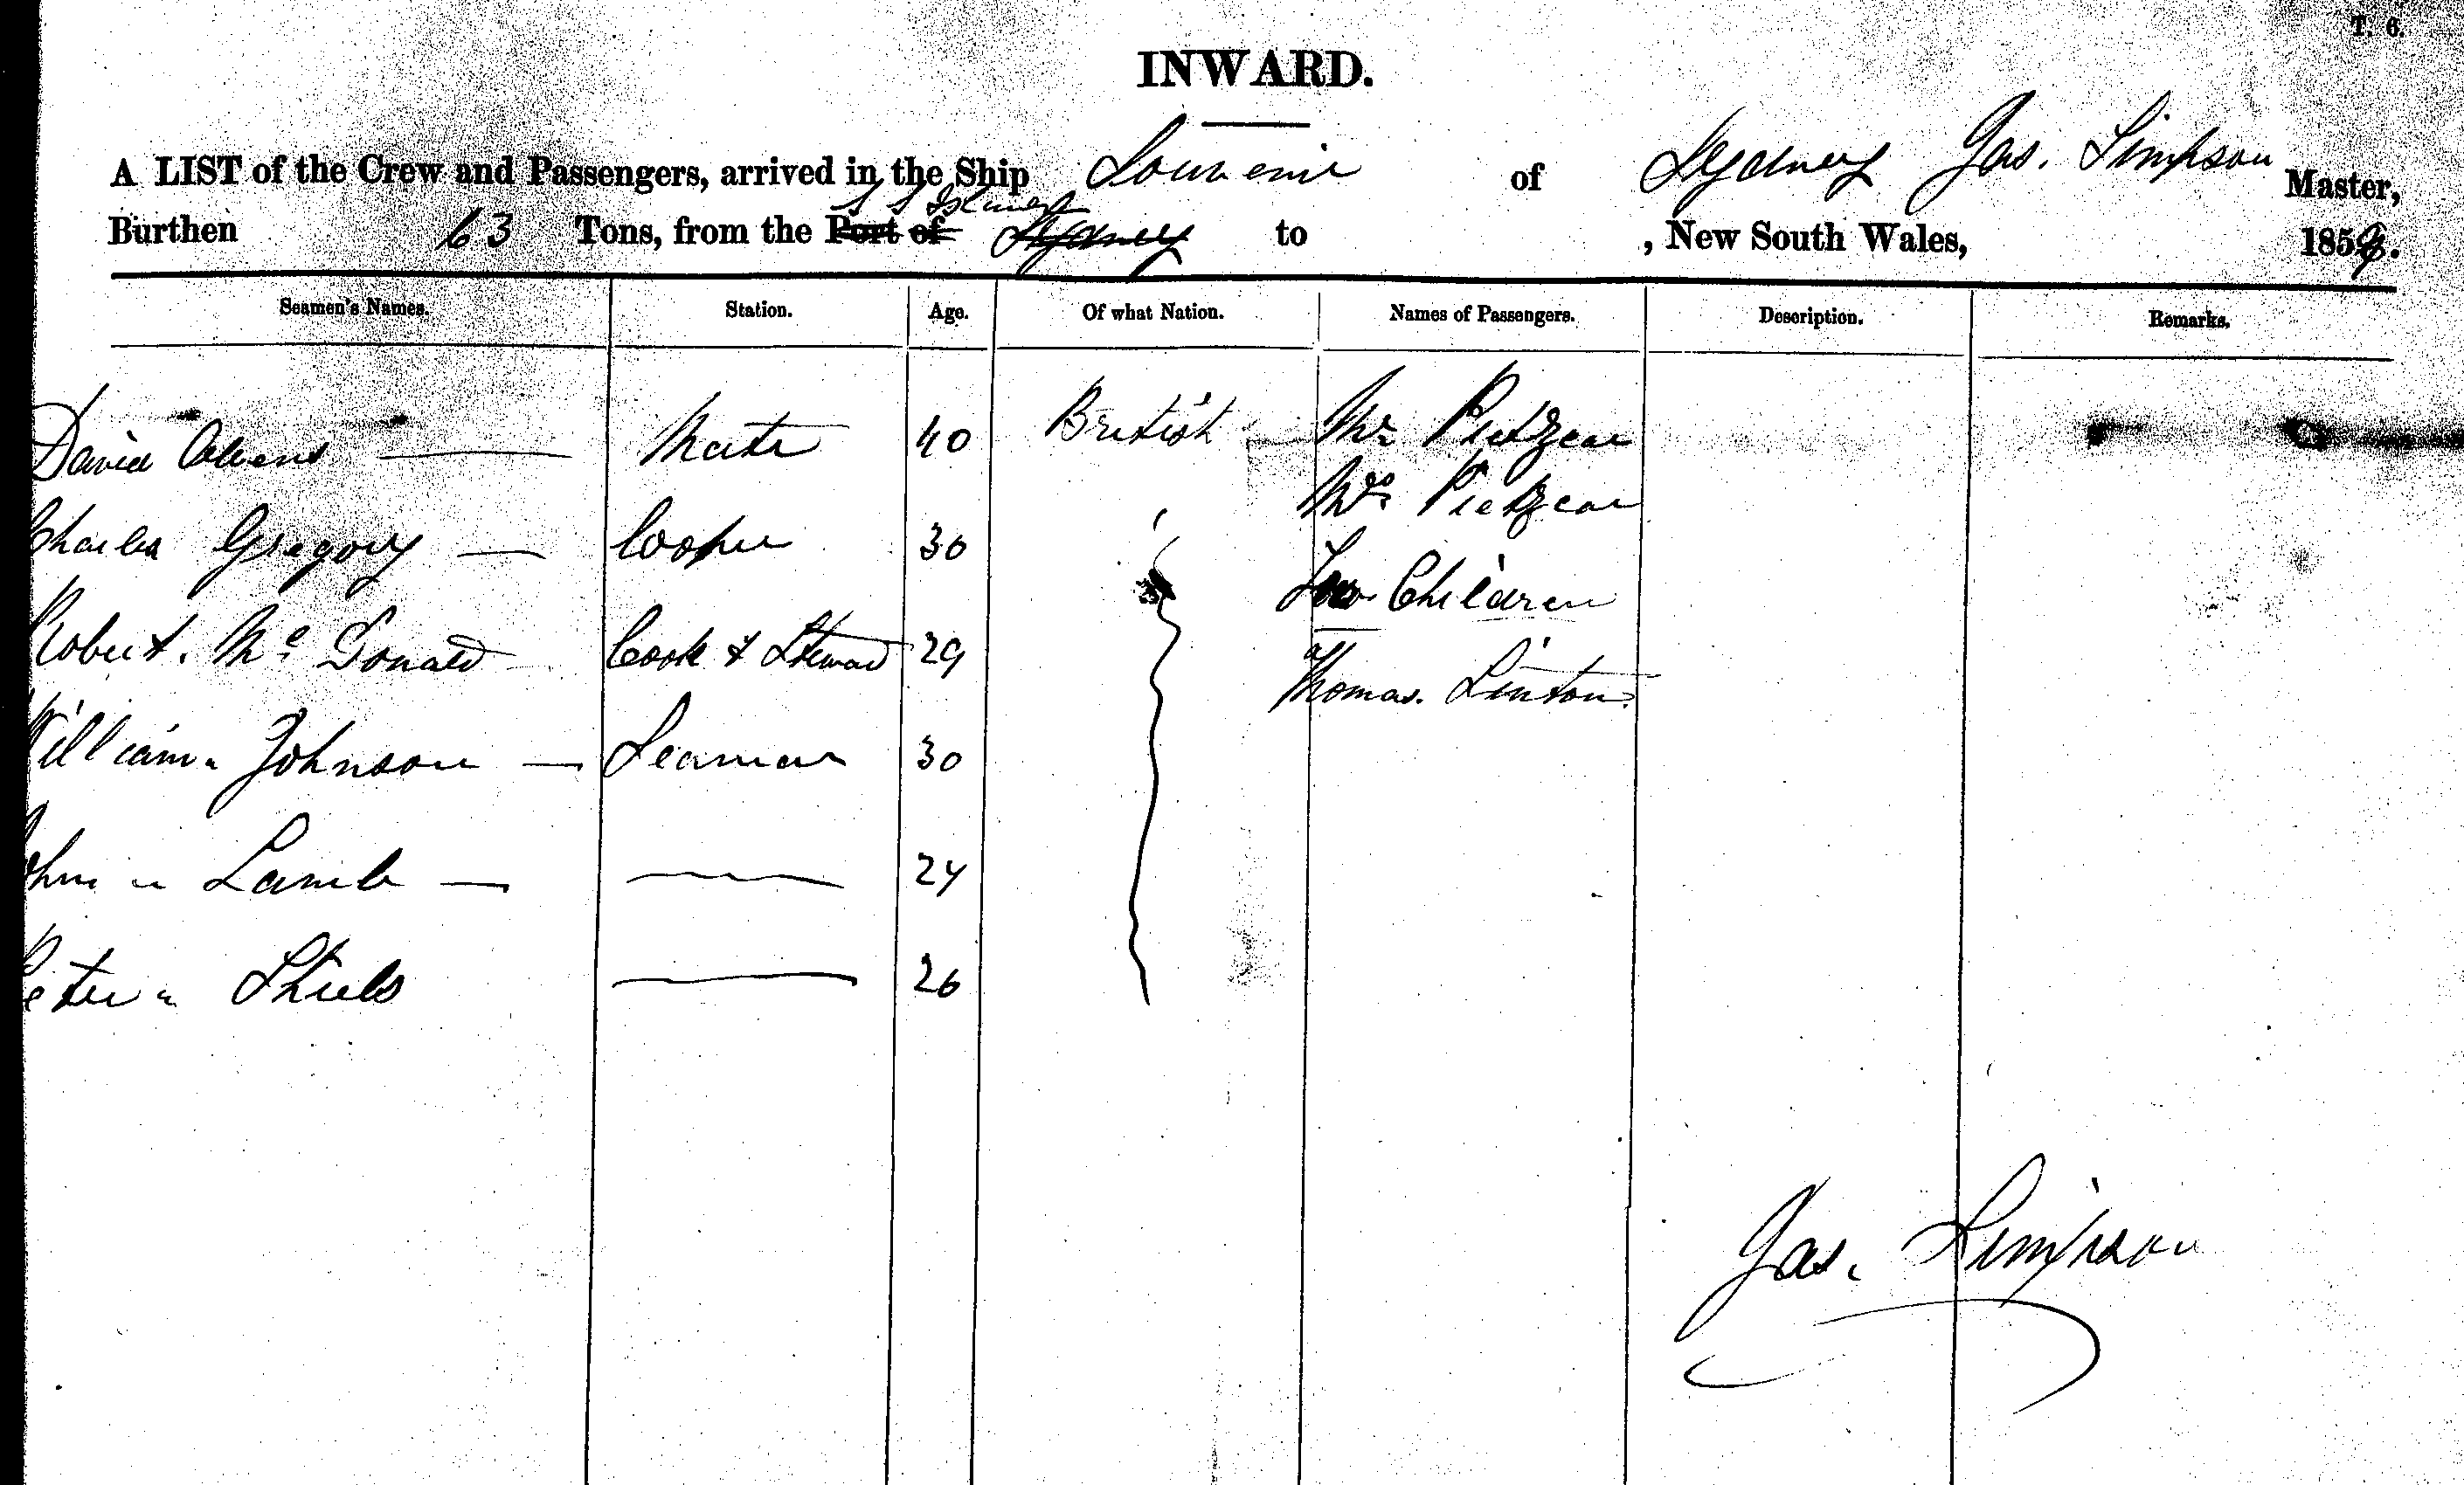 T. 6.
INWARD.
A LIST of the Crew and Passengers, arrived in the Ship Souvenir of Sydney Jas. Simpson Master,
S S Islands
Burthen 63 Tons, from the Port of Sydney to , New South Wales, 1859.
Seamen's Names. Station. Age. Of what Nation. Names of Passengers. Description. Remarks.
David Owens — Mate 40 British Mr
Mrs
Charles Gregory — Cooper 30
Two Children
Robert. Mc Donald Cook & Steward 29
Thomas. Linton.
William Johnson — Seaman 30
John " Lamb — — 24
Peter " Shiels — 26
Jas. Simpson